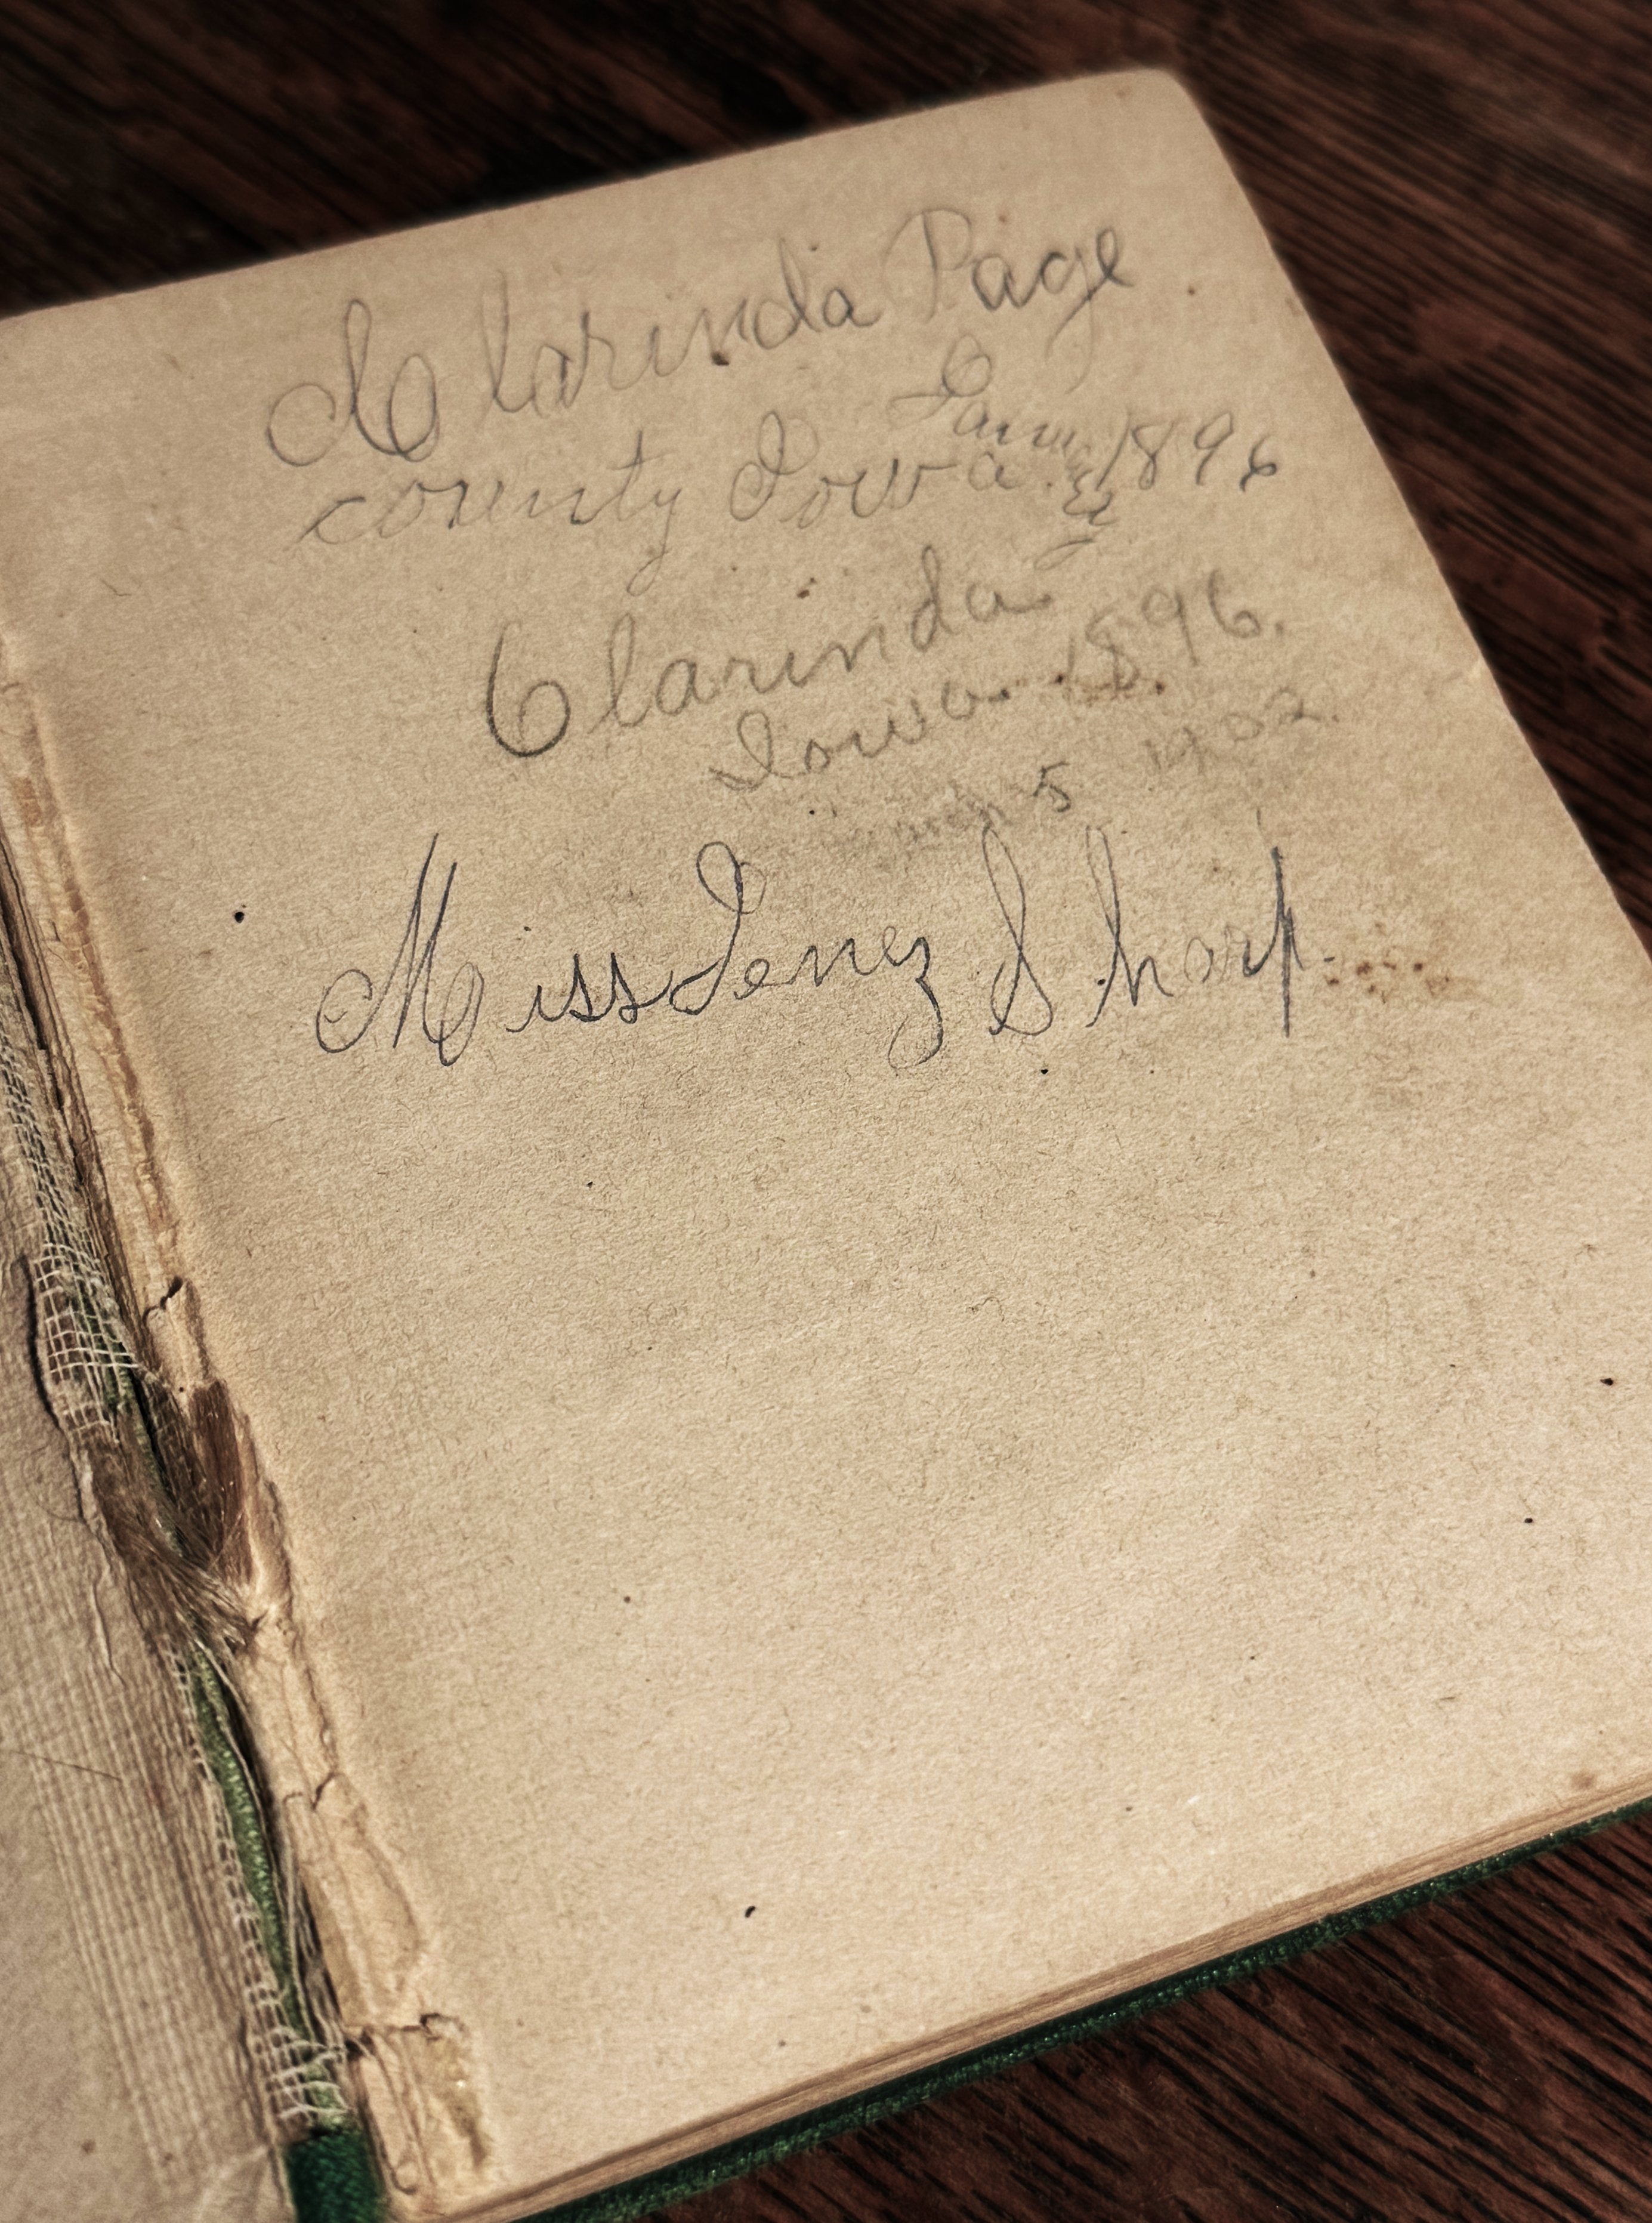 Clarinda Page
county Iowa. 1896
Clarinda
Iowa. 1896.
March 5 1902.
Miss Jenez Sharp.